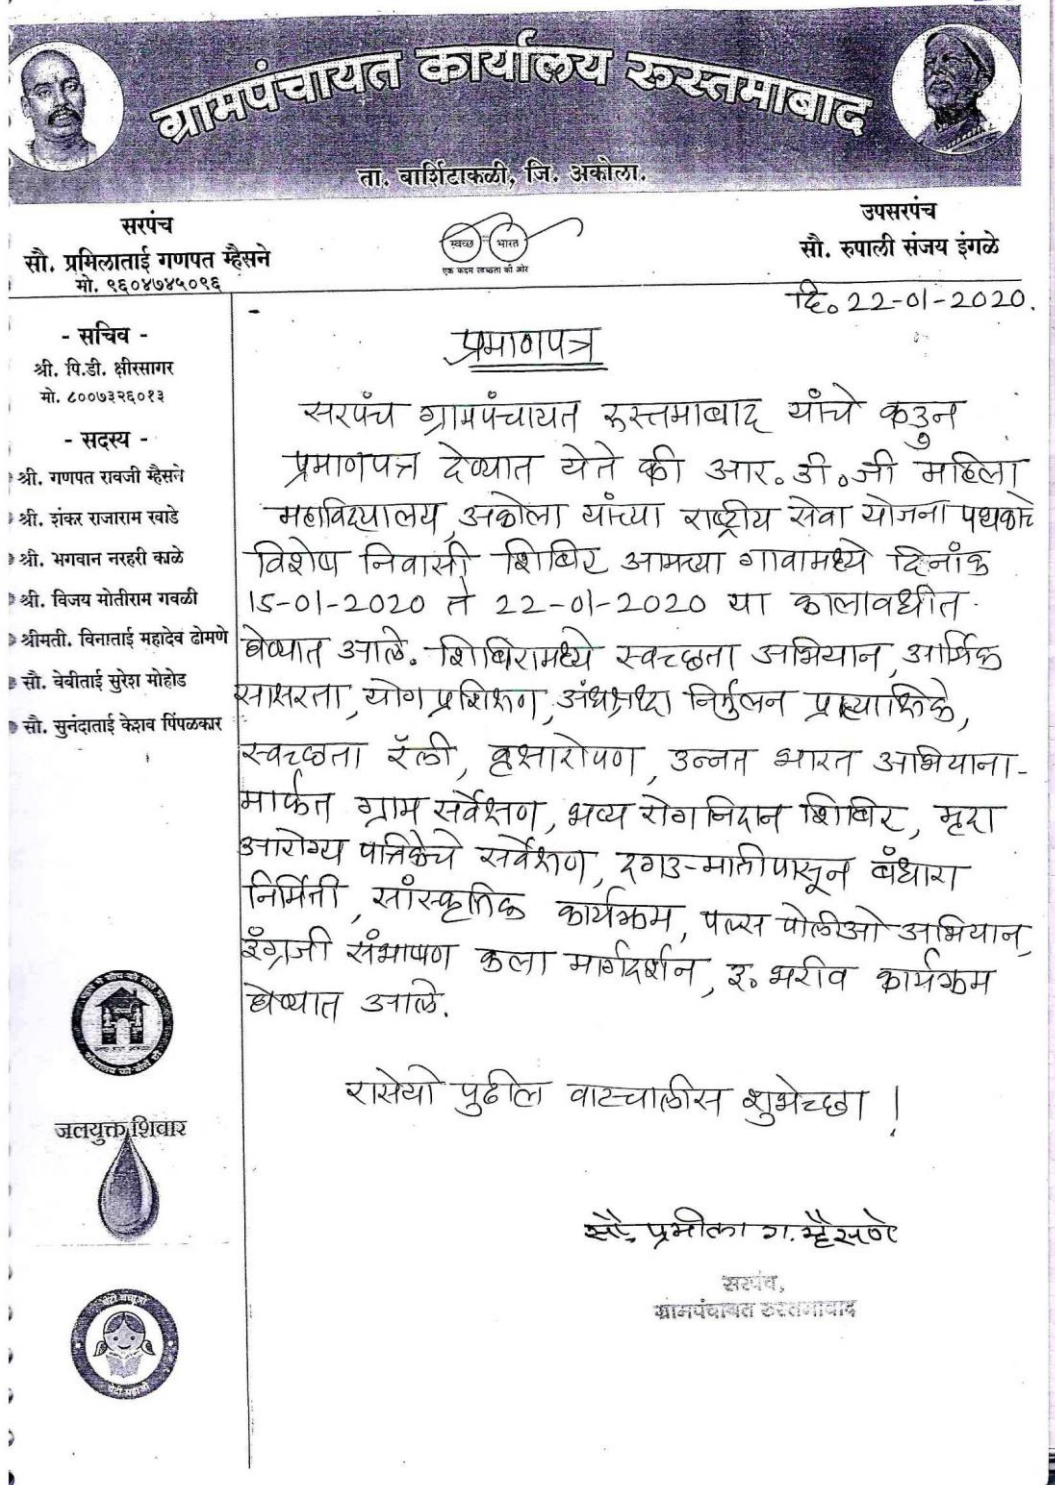 ग्रामपंचायत कार्यालय रुस्तमाबाद
ता. बार्शिटाकळी, जि. अकोला.
सरपंच
सौ. प्रमिलाताई गणपत म्हैसने
मो. ९६०४७४५०९६
स्वच्छ भारत
एक कदम स्वच्छता की ओर
उपसरपंच
सौ. रुपाली संजय इंगळे
दि. 22-01-2020.
- सचिव -
श्री. पि.डी. क्षीरसागर
मो. ८००७३२६०१३
- सदस्य -
श्री. गणपत रावजी म्हैसने
श्री. शंकर राजाराम खाडे
श्री. भगवान नरहरी काळे
श्री. विजय मोतीराम गवळी
श्रीमती. विनाताई महादेव ढोमणे
सौ. बेबीताई सुरेश मोहोड
सौ. सुनंदाताई केशव पिंपळकार
जलयुक्त शिवार
प्रमाणपत्र
सरपंच ग्रामपंचायत रुस्तमाबाद यांचे कडुन
प्रमाणपत्र देण्यात येते की आर.डी.जी महिला
महाविद्यालय, अकोला यांच्या राष्ट्रीय सेवा योजना पथकाचे
विशेष निवासी शिबिर आमच्या गावामध्ये दिनांक
15-01-2020 ते 22-01-2020 या कालावधीत
घेण्यात आले. शिबिरामध्ये स्वच्छता अभियान, आर्थिक
साक्षरता, योग प्रशिक्षण, अंधश्रध्दा निर्मुलन प्रात्याक्षिके,
स्वच्छता रॅली, वृक्षारोपण, उन्नत भारत अभियाना-
मार्फत ग्राम सर्वेक्षण, भव्य रोगनिदान शिबिर, मृदा
आरोग्य पत्रिकेचे सर्वेक्षण, दगड-मातीपासून बंधारा
निर्मिती, सांस्कृतिक कार्यक्रम, पल्स पोलीओ अभियान,
इंग्रजी संभाषण कला मार्गदर्शन, इ. भरीव कार्यक्रम
घेण्यात आले.
रासेयो पुढील वाटचालीस शुभेच्छा !
सौ. प्रमीला ग. म्हैसणे
सरपंच,
ग्रामपंचायत रुस्तमाबाद